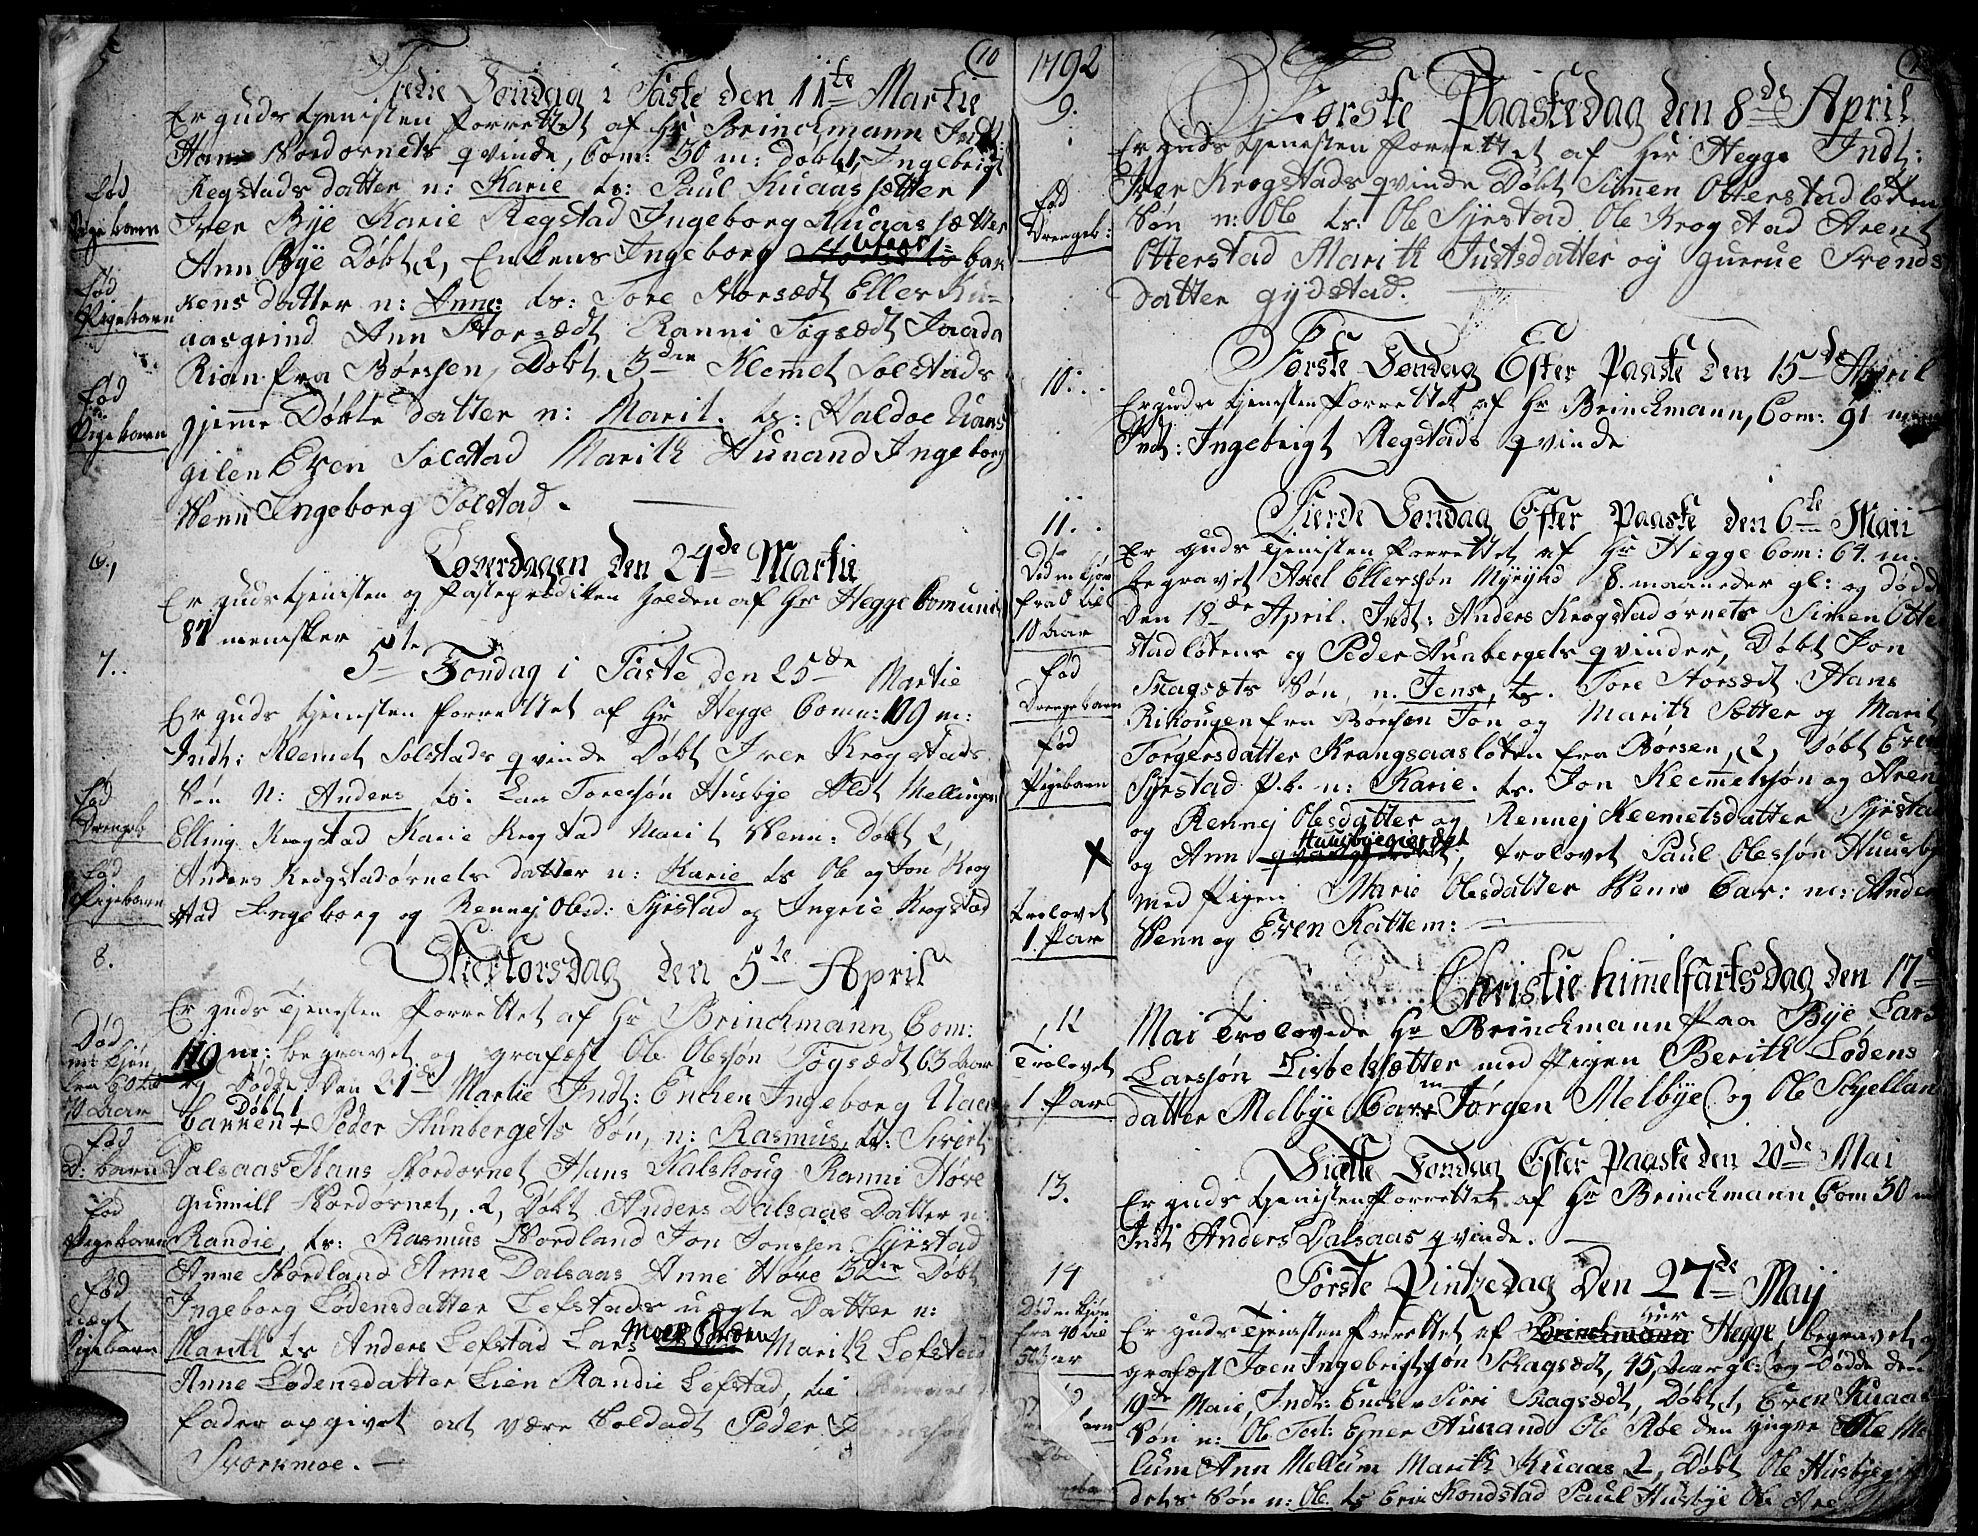 10
3die Søndag i Faste den 11te Martie
Er guds tjenisten forrettet af Hr Brinchmann Indt:
Hans Nordornets qvinde, Com: 30 m: døbt 1, Ingebrigt
Regstads datter n: Karie ts: Paul Kuaassætter
Iver Bye Karie Regstad Ingeborg Kuaassætter
Ann Bye Døbt 2, Enkens Ingeborg bak
kens datter n: Anne: ts: Tore Storsædt Eller Ku-
aasgrind Ann Storsædt Ranni Togsædt
Rian fra Børssen, Døbt 3die Klemmet Solstads
hjemme Døbte datter n: Marit. ts: Haldoe
gilen Even Solstad Marith Hunand Ingeborg
Wenn Ingeborg Solstad.
fød
Pige barn
fød
Pigebarn
fød
Pigebarn
6.,
Løverdagen den 24de Martie
Er guds tjenisten og fasteprædiken holden af Hr Hegge Comuni
87 menisker
7.
5te Søndag i Faste den 25de Martie
Er guds tjenisten forrettet af Hr Hegge Comu: 109 m:
Indt: Klemet Solstads qvinde Døbt Iver Krogstads
Søn N: Anders ts: Lars Toresøn Husbye Mellingen
Elling Krogstad Karie Krogstad Marit Wenn: Døbt 2,
Anders Krogstadørnets datter n: Karie ts Ole og Jon Krog
stad Ingeborg og Rennej Olesd: Syrstad og Ingrie Krogstad
fød
Drengeb
fød
Pigebarn
8.
Skiertorsdag den 5te April
Er guds Tjenesten forrettet af Hr Brinchmann, Com:
119 m: begravet og grafæst Ole Olessøn Togsædt 63 aar
og Døde Den 21de Martie Indt: Enchen Ingeborg
bakken + Døbt 1 Peder Hunbergets Søn, n: Rasmus, ts: Sivert
Dalsaas Hans Nordornet Hans Kalskoug Ranni Høve
gunnill Nordornet, 2, Døbt Anders Dalsaas Datter n:
Randie, ts: Rasmus Nordland Jon Jonssen Syrstad
Anne Nordland Anne Dalsaas Anne Høve 3die Døbt
Ingeborg Lodensdatter Lefstads uægte Datter n:
Marith ts Anders Lefstad Lars Marith Lefstad
Anne Lodensdatter Lien Randie Lefstad, til
fader opgivet at være Soldadt Peder
Svorkmoe.
Død
m: kjøn
fra 60 til
70 aar
fød
D: barn
fød
Pigebarn
fød
uægt
Pigebarn
1792
9.
Første Paaskedag den 8de April
Er guds tjenesten forrettet af Hr Hegge Indt:
Iver Krogstads qvinde Døbt Simen Otterstadløkens
Søn n: Ole ts: Ole Syrstad Ole Krogstad Arent
Otterstad Marith Justsdatter og gurrue Svends
datter gydstad.
fød
Drengeb:
10.
Første Søndag Efter Paaske den 15de April
Er guds tjenesten forrettet af Hr Brinckmann, Com: 91 men
Indt: Ingebrigt Regstads qvinde
11.
Fierde Søndag Efter Paaske den 6te Maii
Er guds Tjenisten forrettet af Hr Hegge Com: 64 m.
begravet Axel Ellersøn Myrynd 8. maaneder gl: og døde
Den 18de April. Indt: Anders Krogstadornets Simen Otter
stadløkens og Peder Hunbergets qvinder, Døbt Jon
Skagsæts Søn, n. Jens, ts. Tore Storsædt Hans
Rikougen fra Børsen Jon og Marith Sætter og Marit
Torgersdatter Krangsaasløken fra Børsen, 2, Døbt Even
Syrstad P.b. n: Karie. ts. Jon Klemmetsøn og Arent
og Rennej Olesdatter og Rennej Klemetsdatter Syrstad
og Ann Huusbyegierdet, trolovet Paul Olessøn Huusby
med Pigen Marie Olesdatter Wenn Cav: m: Anders
Wenn og Even Kattem:
Død m: kjøn
fra 0 til
10 aar
fød
Drengebarn
fød
Pigebarn
X
Trolovet
1. Par
12
Christie himmelfarts dag den 17
Mai Trolovede Hr Brinchmann Paa Bye Lars
Larssøn Lisbetsætter med Pigen Berith Lodens
datter Melbye Cav: m Jørgen Melbye og Ole Schjellan
Trolovet
1. Par
13.
Siætte Søndag Efter Paaske den 20de Mai
Er guds tjenisten forrettet af Hr Brinchmann Com 30 m
Indt Anders Dalsaas qvinde.
14
Første Pintzedag Den 27de Maij
Er guds Tjenisten forrettet af Brinchmann Hr Hegge begravet og
grafæst Joen Ingebrigtsøn Skagsædt, 45, aar gl: og Døde den
19de Maie Indt: Enche Siri Skagsædt, Døbt 1, Even Kuaas
Søn n: Ole Test: Ejner Hunand Ole Røe den yngre Ole Me
lum Ann Mellum Marith Kuaas 2, Døbt Ole Husbyegier
dets Søn n: Ole ts Erik Kondstad Paul Husbye Ole
Død m: kjøn
fra 40 til
50 aar